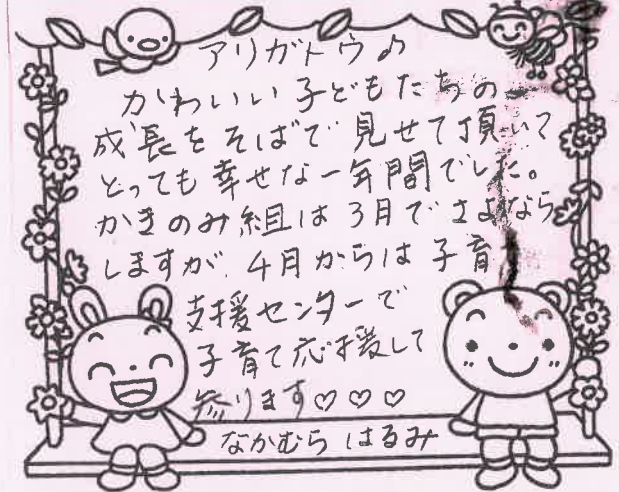 アリガトウ♪
かわいい子どもたちの
成長をそばで見せて頂いて
とっても幸せな一年間でした。
かきのみ組は3月でさよなら
しますが、4月からは子育て
支援センターで
子育て応援して
参ります♡♡♡
なかむら はるみ